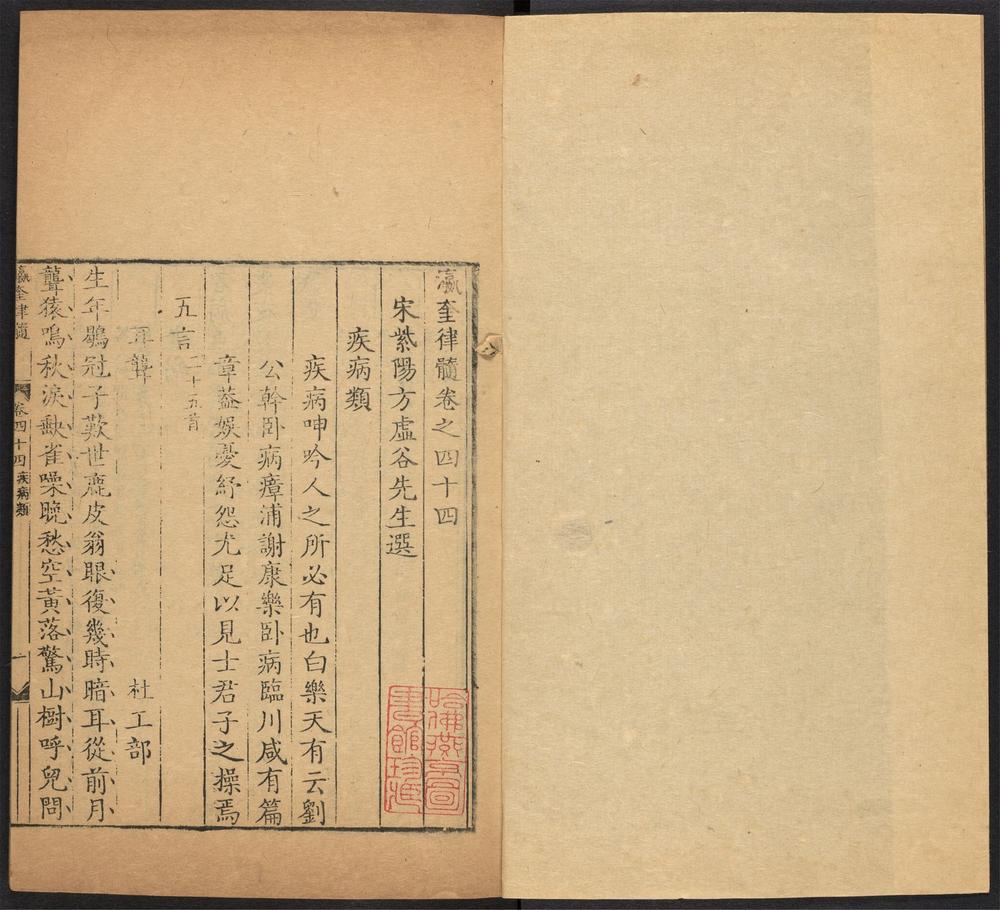 瀛奎律髓卷之四十四
宋紫陽方虛谷先生選
疾病類
疾病呻吟人之所必有也白樂天有云劉
公幹卧病瘴浦謝康樂卧病臨川咸有篇
章葢娛憂紓怨尤足以見士君子之操焉
五言二十五首
耳聾 杜工部
生年鶡冠子歎世鹿皮翁眼復幾時暗耳從前月
聾猿鳴秋淚缺雀噪晚愁空黃落驚山樹呼兒問
瀛奎律髓 卷四十四疾病類 一
哈佛燕京圖
書館珍藏